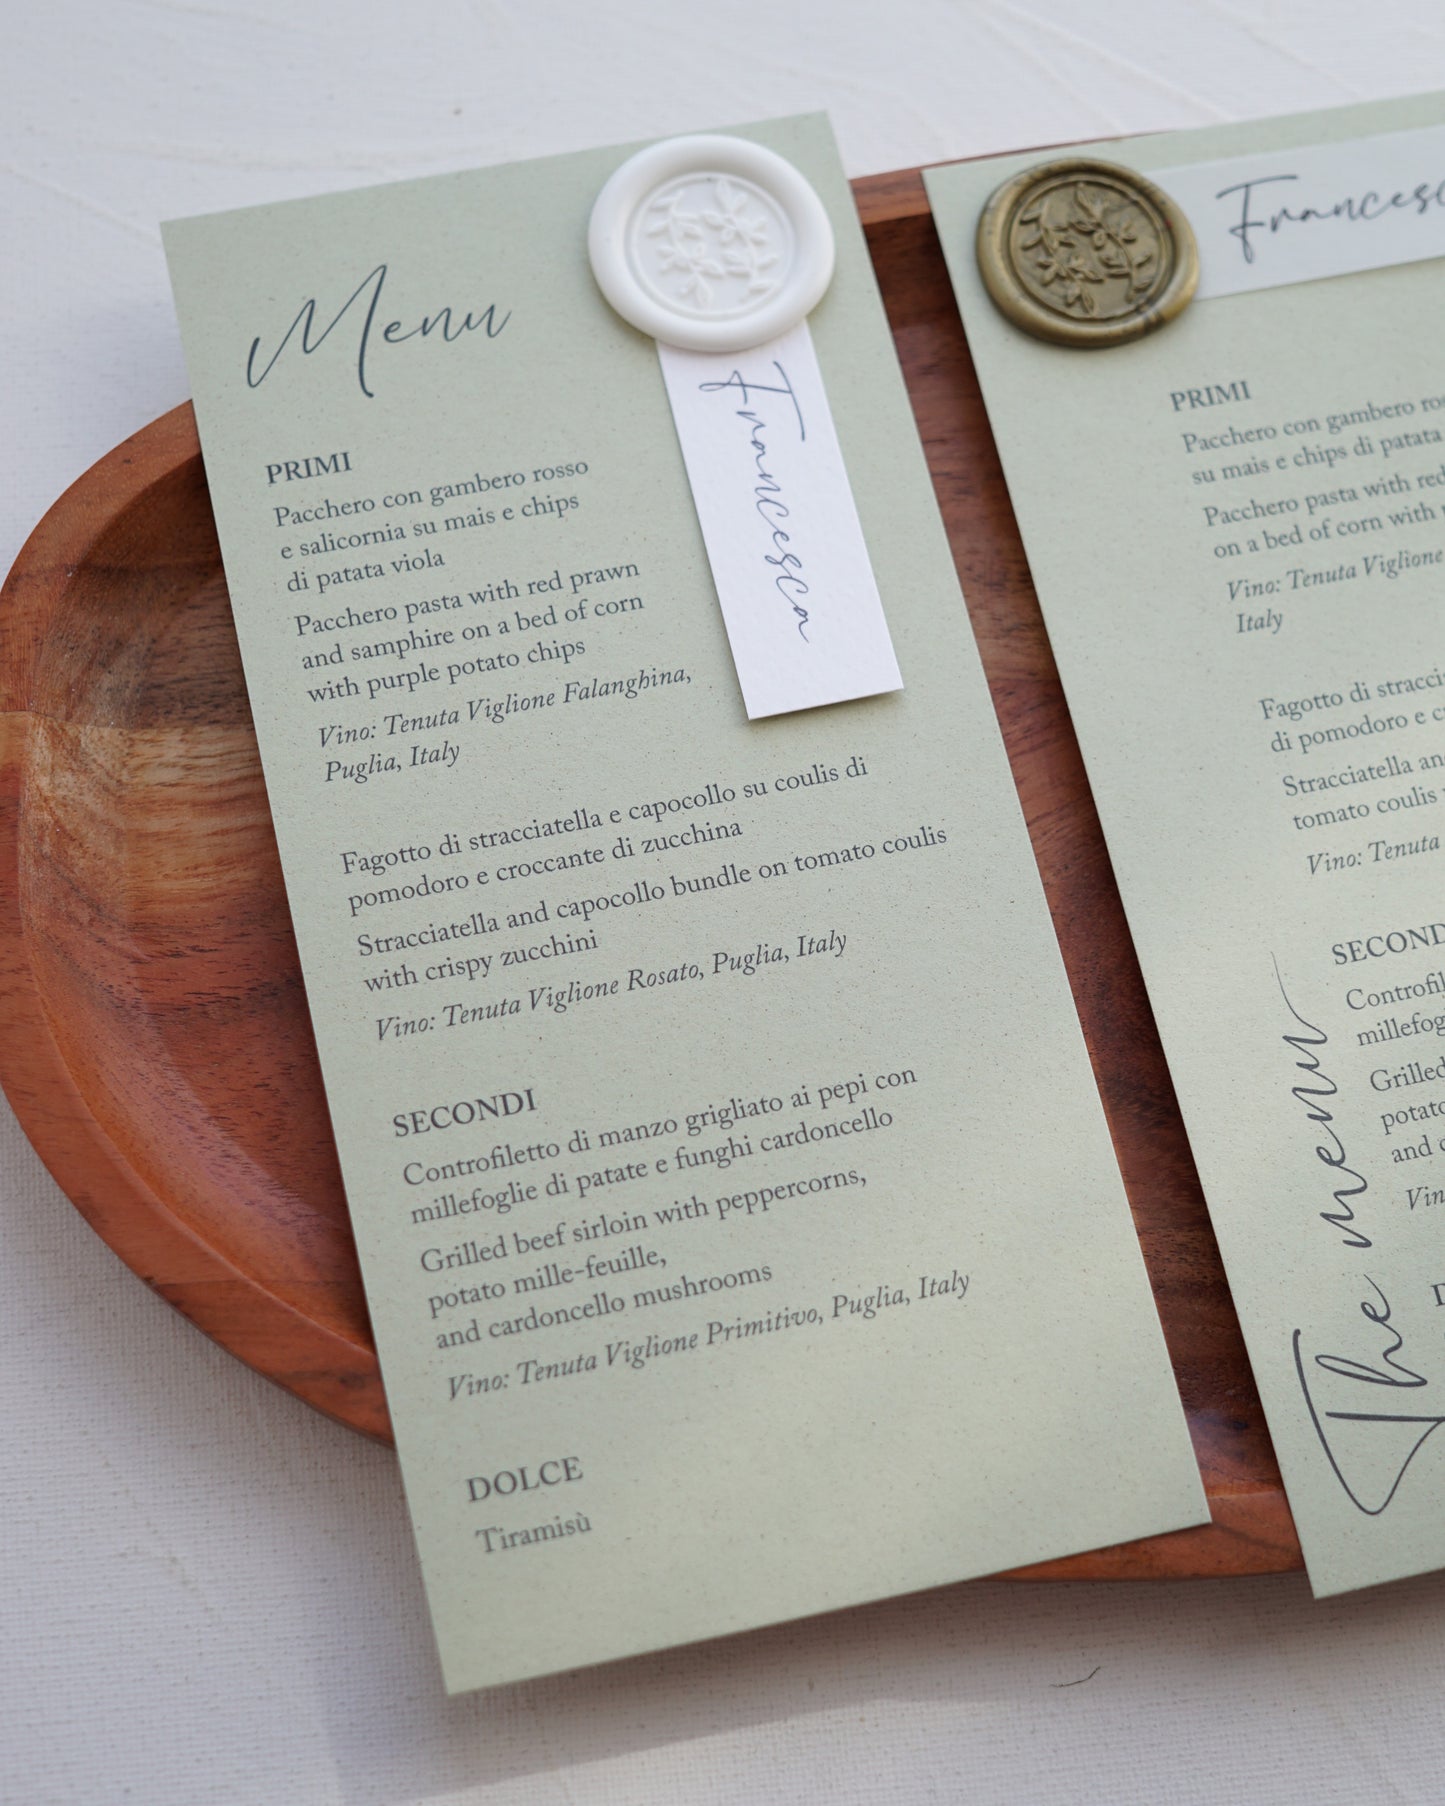 Menu
Francesca
PRIMI
Pacchero con gambero rosso
e salicornia su mais e chips
di patata viola
Pacchero pasta with red prawn
and samphire on a bed of corn
with purple potato chips
Vino: Tenuta Viglione Falanghina,
Puglia, Italy
Fagotto di stracciatella e capocollo su coulis di
pomodoro e croccante di zucchina
Stracciatella and capocollo bundle on tomato coulis
with crispy zucchini
Vino: Tenuta Viglione Rosato, Puglia, Italy
SECONDI
Controfiletto di manzo grigliato ai pepi con
millefoglie di patate e funghi cardoncello
Grilled beef sirloin with peppercorns,
potato mille-feuille,
and cardoncello mushrooms
Vino: Tenuta Viglione Primitivo, Puglia, Italy
DOLCE
Tiramisù
Francesc
PRIMI
Pacchero con gambero
su mais e chips di patata
Pacchero pasta with red
on a bed of corn with
Vino: Tenuta Viglione
Italy
Fagotto di
di pomodoro e
Stracciatella an
tomato coulis
Vino: Tenuta
SECOND
Controfil
millefog
Grilled
potato
and
Vin
The menu